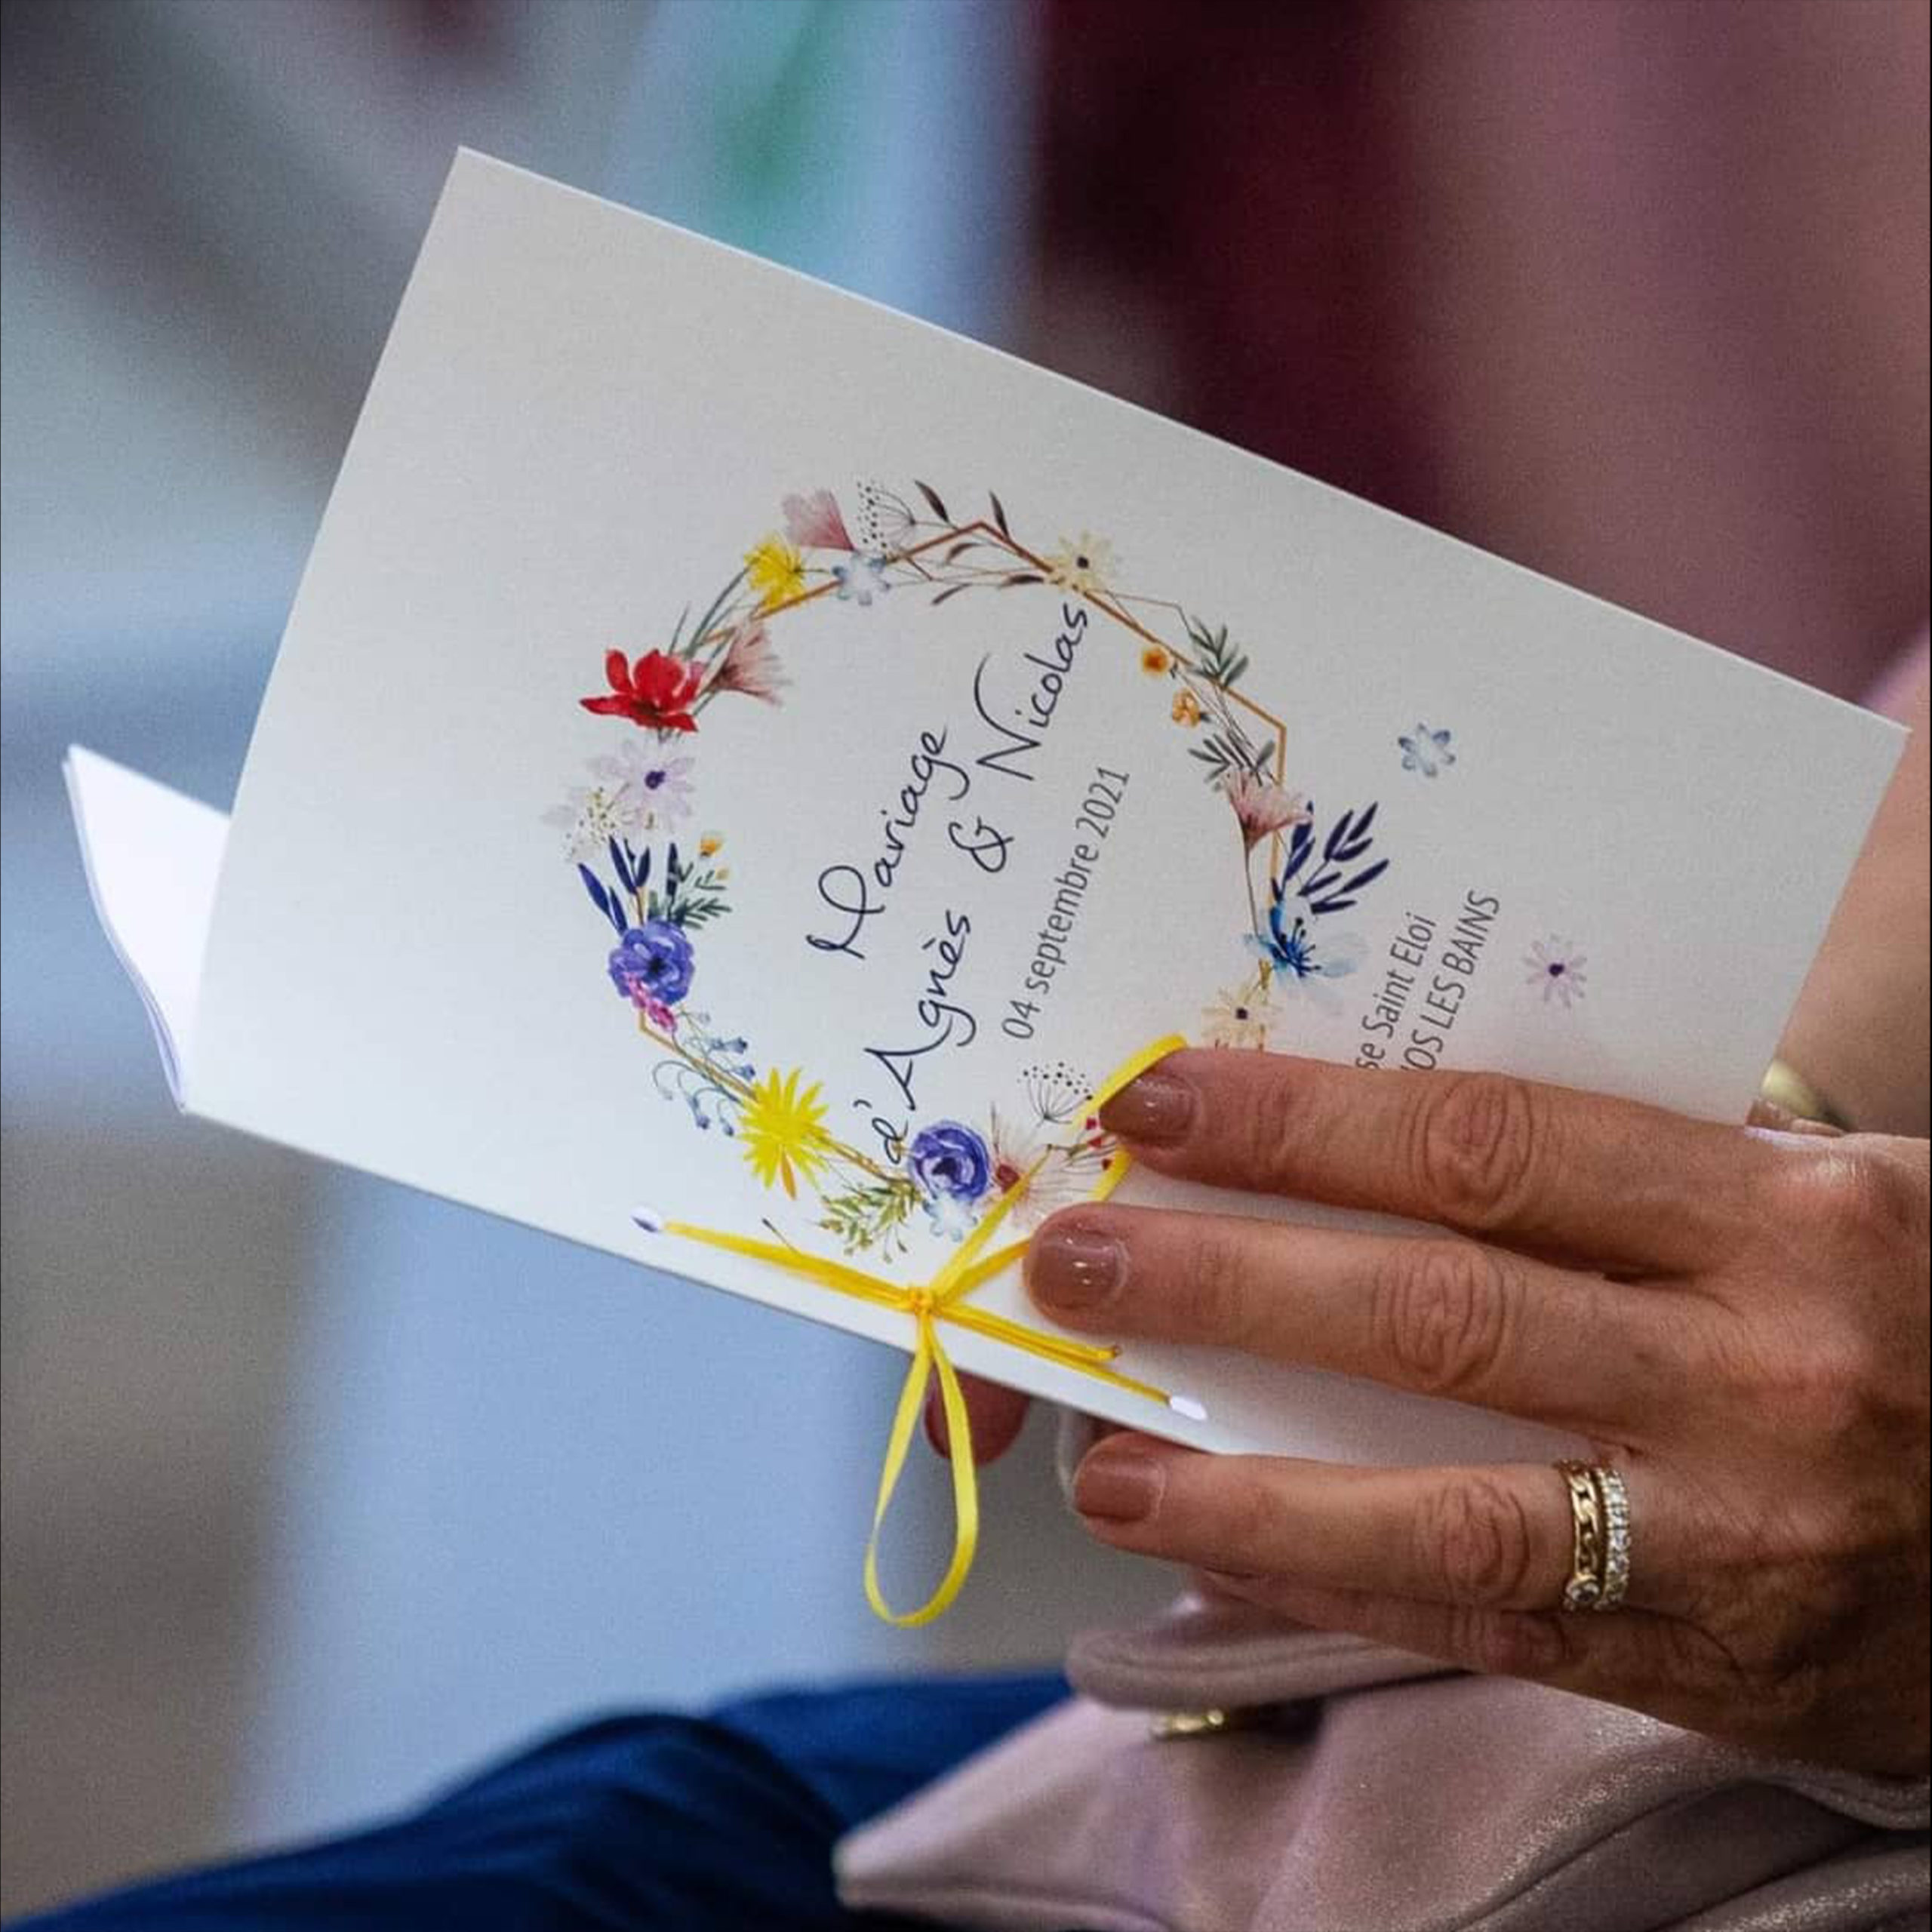 Mariage
d'Agnès & Nicolas
04 septembre 2021
Saint Eloi
LES BAINS